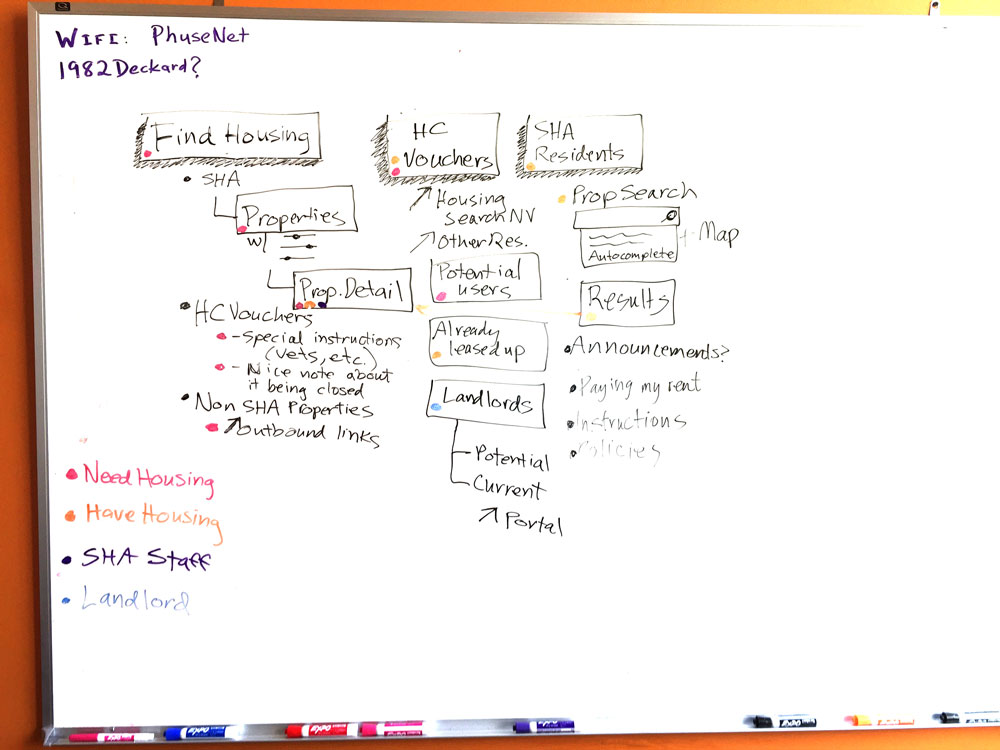 WIFI: PhuseNet
1982Deckard?
Find Housing
• SHA
Properties
w/
Prop. Detail
• HC Vouchers
- Special instructions
(vets, etc.)
- Nice note about
it being closed
• Non SHA Properties
↗ Outbound links
HC
Vouchers
↗ Housing
search NV
↗ Other Res.
Potential
users
Already
leased up
Landlords
Potential
Current
↗ Portal
SHA
Residents
• Prop Search
Autocomplete
+ Map
Results
• Announcements?
• Paying my rent
• Instructions
• Policies
• Need Housing
• Have Housing
• SHA Staff
• Landlord